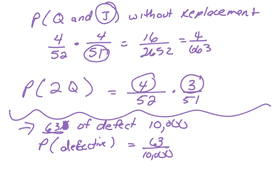 P(Q and J) without replacement
4/52 · 4/51 = 16/2652 = 4/663
P(2Q) = 4/52 · 3/51
→ 63 of defect 10,000
P(defective) = 63/10,000